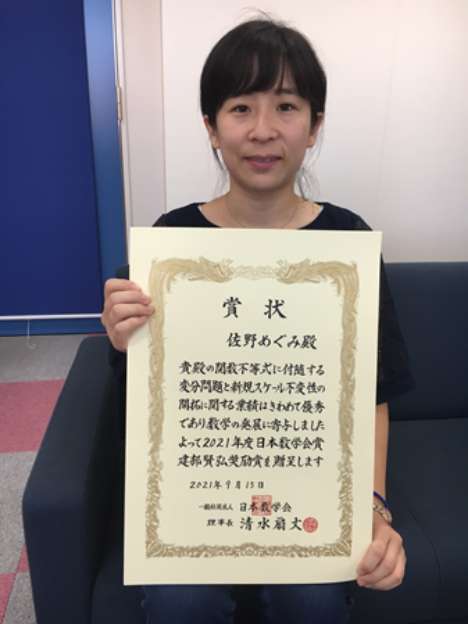 賞状
佐野めぐみ殿
貴殿の関数不等式に付随する
変分問題と新規スケール不変性の
開拓に関する業績はきわめて優秀
であり数学の発展に寄与しました
よって2021年度日本数学会賞
建部賢弘奨励賞を贈呈します
2021年9月15日
一般社団法人 日本数学会
理事長 清水扇丈